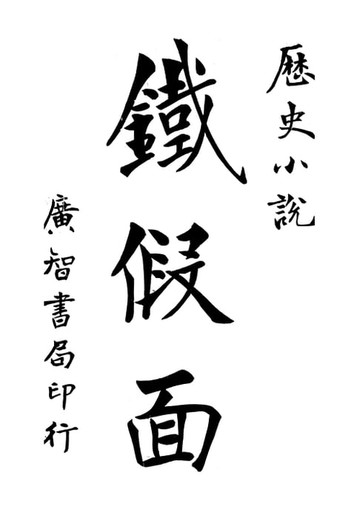 歷史小說
鐵假面
廣智書局印行